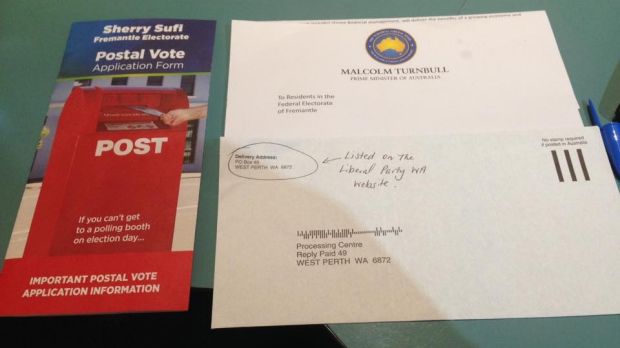 Sherry Sufi
Fremantle Electorate
Postal Vote
Application Form
POST
If you can't get
to a polling booth
on election day...
IMPORTANT POSTAL VOTE
APPLICATION INFORMATION
financial management, will deliver the benefits of a
MALCOLM TURNBULL
PRIME MINISTER OF AUSTRALIA
To Residents in the
Federal Electorate
of Fremantle
Delivery Address:
PO Box 49
WEST PERTH WA 6872
Listed on the
Liberal Party WA
website!
No stamp required
if posted in Australia
Processing Centre
Reply Paid 49
WEST PERTH WA 6872